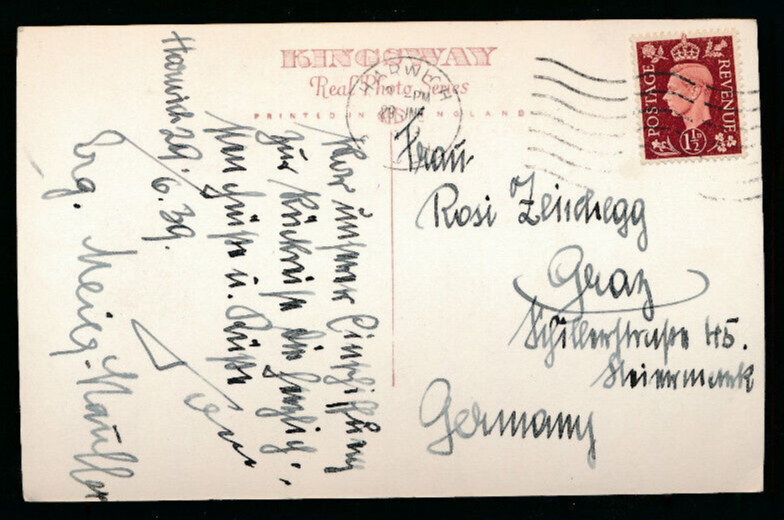 KINGSWAY
Real Photo Series
PRINTED IN ENGLAND
HARWICH
PM
29 JNE
POSTAGE
REVENUE
1½D
Harwich 29.
6.39.
Vor unserer Einschiffung
zur Rückreise die herzlich-
sten Grüße u. Küsse
Frau
Rosi Zeschegg
Graz
Schillerstraße 45.
Steiermark
Germany